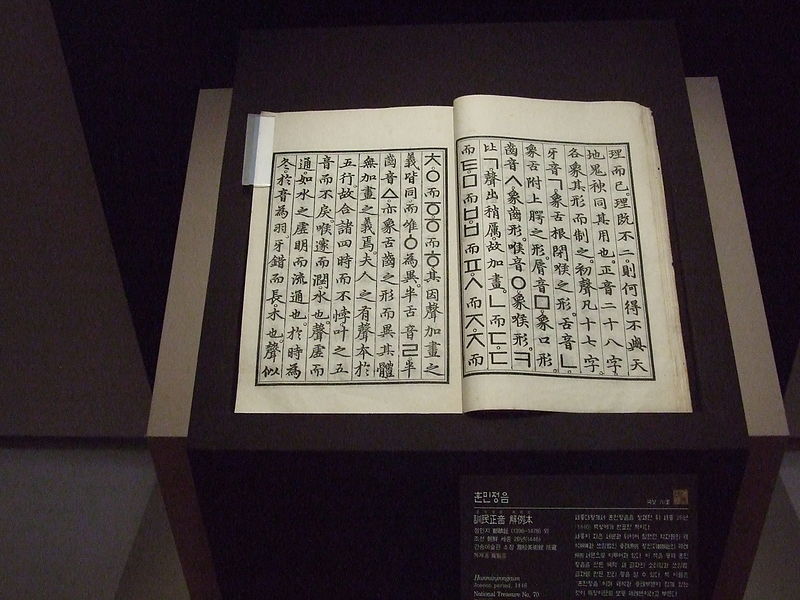 理而已。理既不二。則何得不與天
地鬼神同其用也。正音二十八字。
各象其形而制之。初聲凡十七字。
牙音ㄱ。象舌根閉喉之形。舌音ㄴ。
象舌附上腭之形。脣音ㅁ。象口形。
齒音ㅅ。象齒形。喉音ㅇ。象喉形。ㅋ
比ㄱ。聲出稍厲。故加畫。ㄴ而ㄷ。ㄷ
而ㅌ。ㅁ而ㅂ。ㅂ而ㅍ。ㅅ而ㅈ。ㅈ而
ㅊ。ㅇ而ㆆ。ㆆ而ㅎ。其因聲加畫之
義皆同。而唯ㆁ為異。半舌音ㄹ。半
齒音ㅿ。亦象舌齒之形而異其體。
無加畫之義焉。夫人之有聲本於
五行。故合諸四時而不悖。叶之五
音而不戾。喉邃而潤。水也。聲虛而
通。如水之虛明而流通也。於時為
冬。於音為羽。牙錯而長。木也。聲似
훈민정음
訓民正音 解例本
조선 朝鮮 세종 28년(1446)
Hunminjeongeum
Joseon period, 1446
National Treasure No. 70